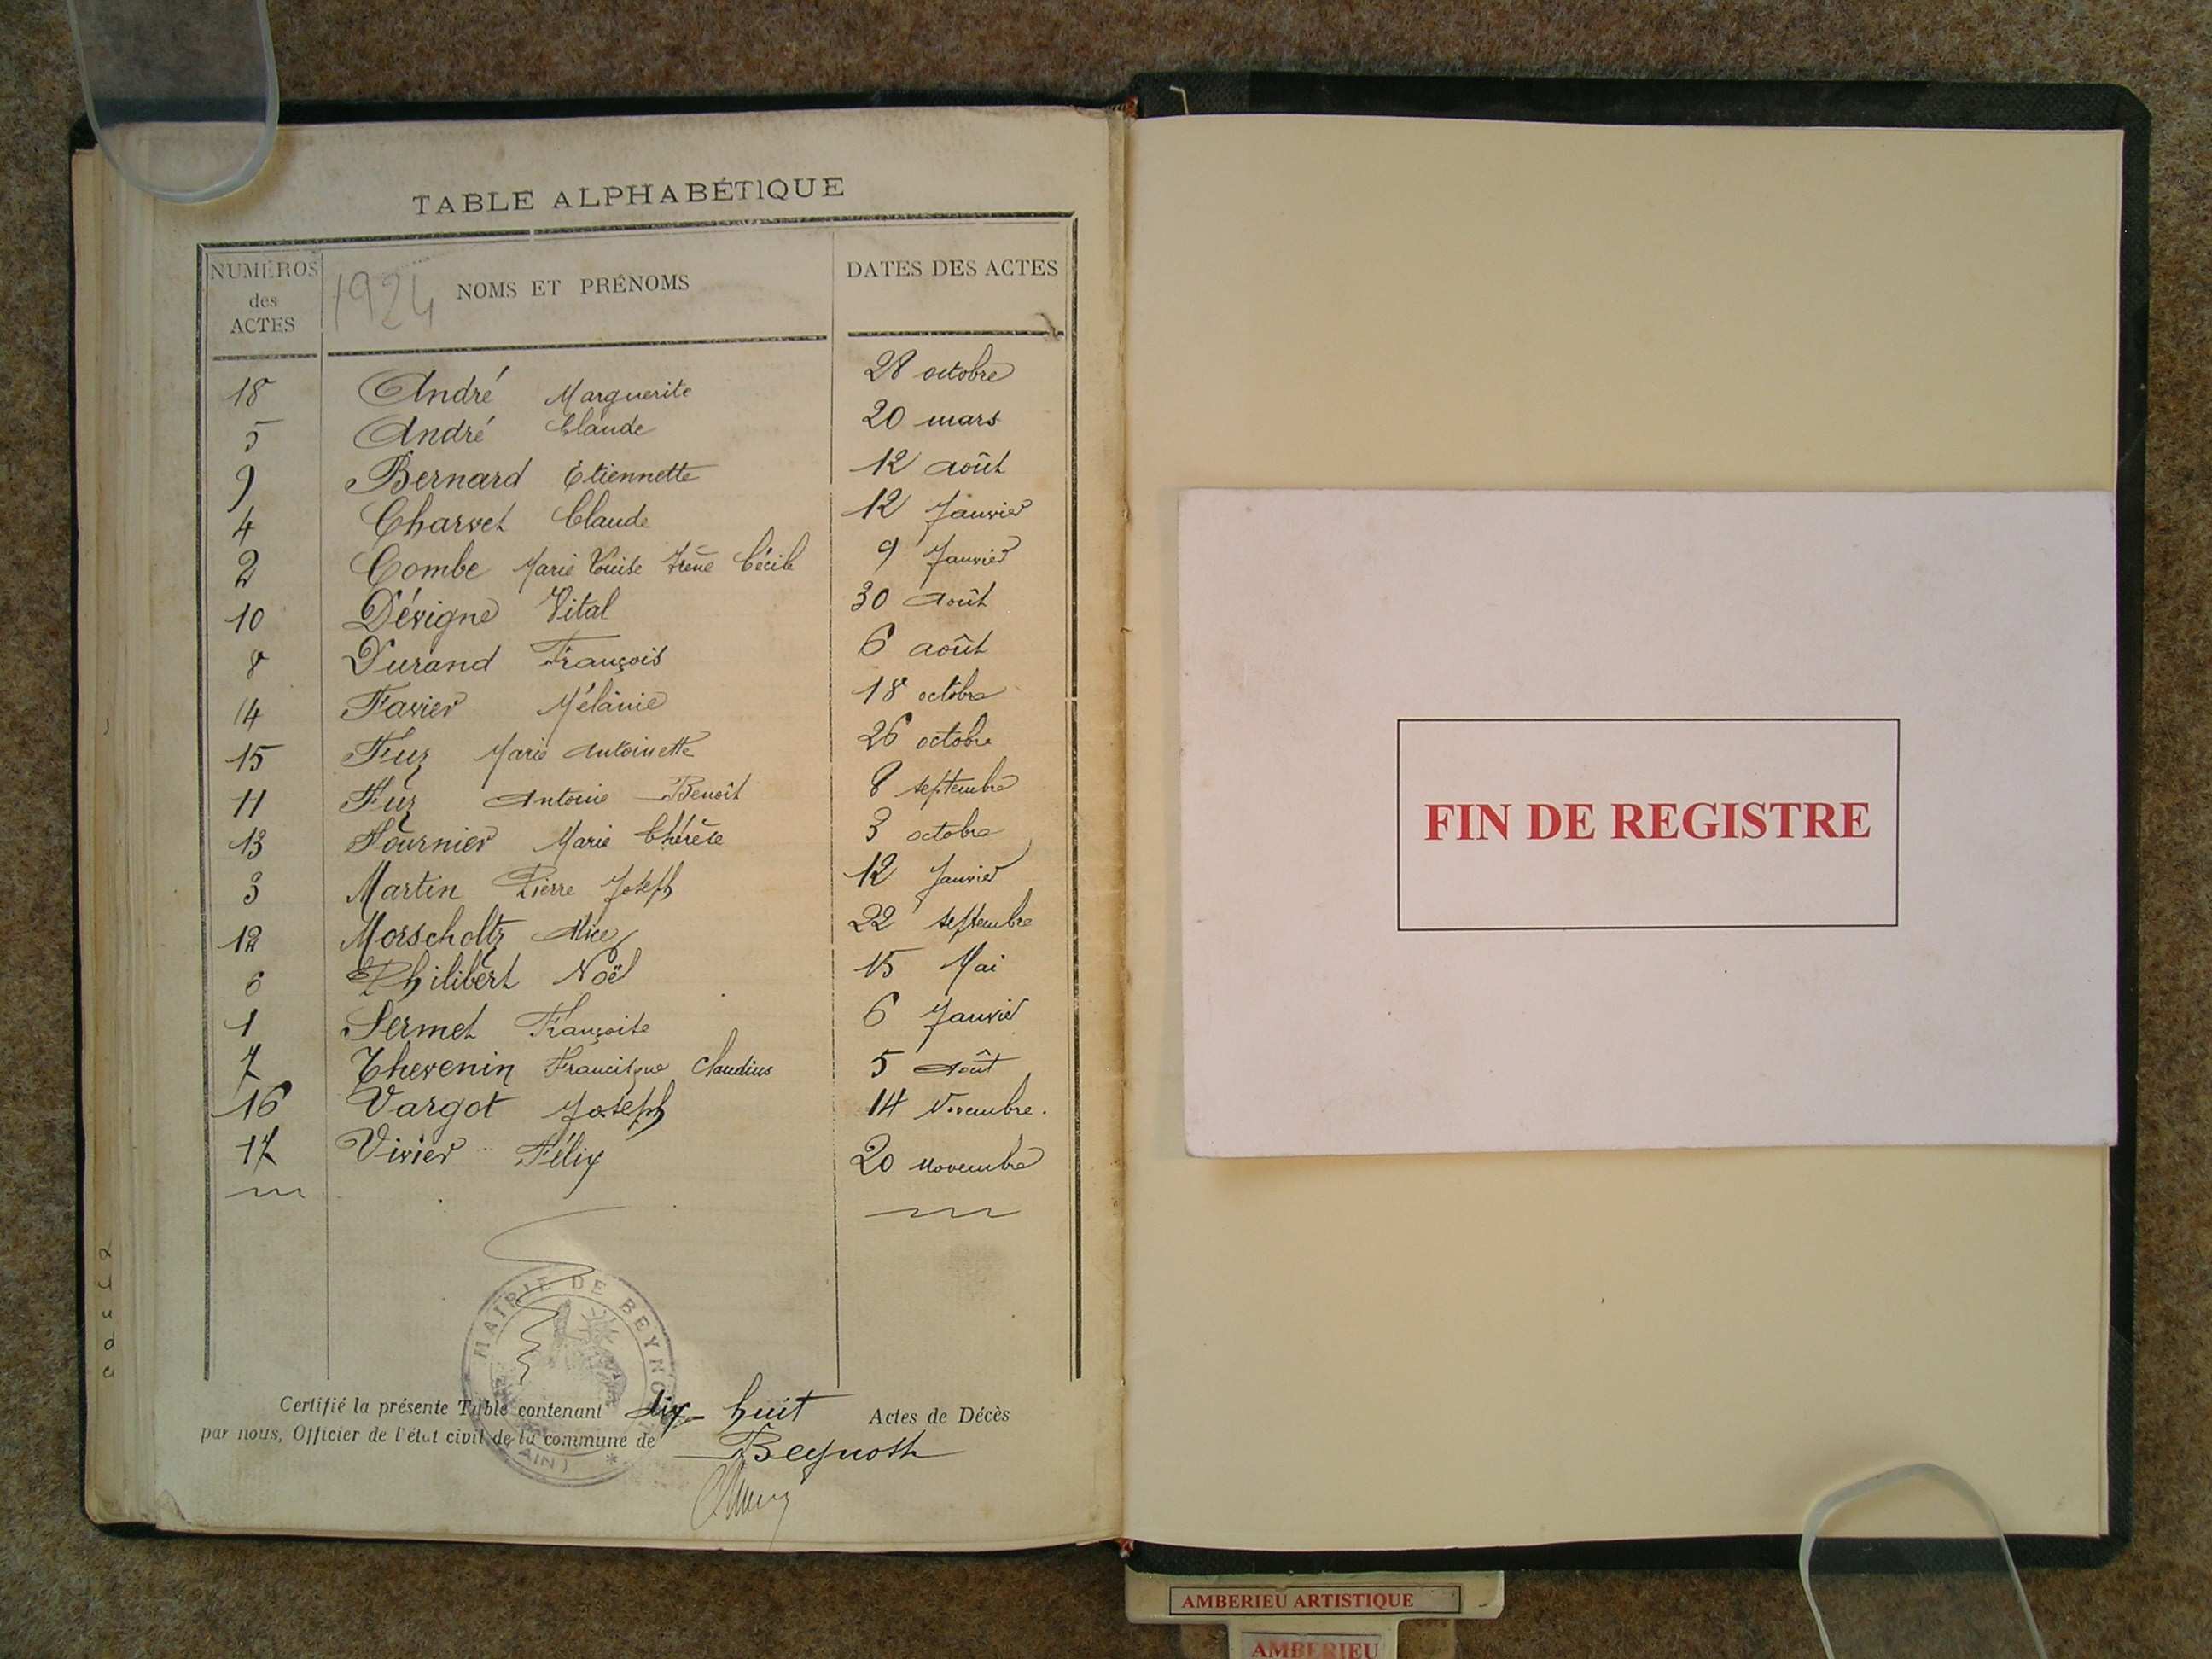 TABLE ALPHABÉTIQUE
NUMÉROS des ACTES
1924 NOMS ET PRÉNOMS
DATES DES ACTES
18 André Marguerite 28 octobre
5 André Claude 20 mars
9 Bernard Etiennette 12 août
4 Charvet Claude 12 Janvier
2 Combe Marie Louise Irène Cécile 9 Janvier
10 Dévigne Vital 30 Août
8 Durand François 6 août
14 Favier Mélanie 18 octobre
15 Fuz Marie Antoinette 26 octobre
11 Fuz Antoine Benoît 8 septembre
13 Fournier Marie Thérèse 3 octobre
3 Martin Pierre Joseph 12 Janvier
12 Morscholtz Alice 22 septembre
6 Philibert Noël 15 Mai
1 Sermet Françoise 6 Janvier
7 Thevenin Francisque Claudius 5 Août
16 Vargot Joseph 14 Novembre.
17 Vivier Félix 20 novembre
MAIRIE DE BEYNO
(AIN) *
Certifié la présente Table contenant dix-huit Actes de Décès
par nous, Officier de l'état civil de la commune de Beynost
FIN DE REGISTRE
AMBERIEU ARTISTIQUE
AMBERIEU